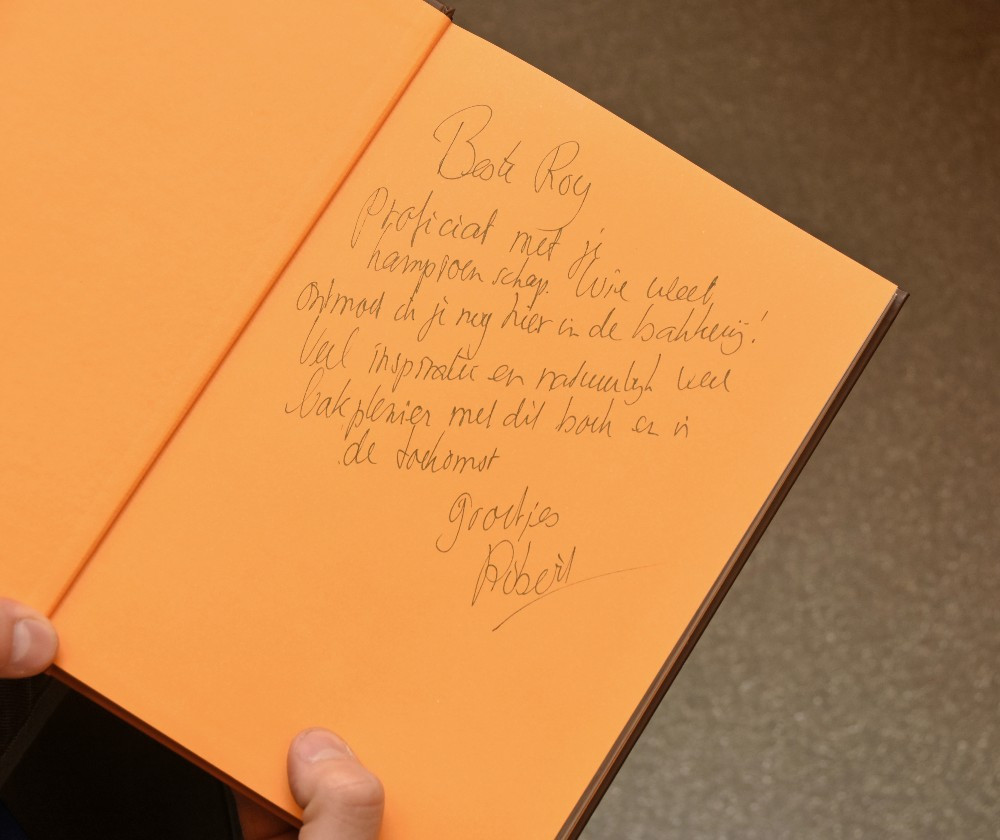 Beste Roy
Proficiat met je
kampioenschap. Wie weet,
ontmoet ik je nog hier in de bakkerij!
Veel inspiratie en natuurlijk veel
bakplezier met dit boek en in
de toekomst
groetjes
Robert